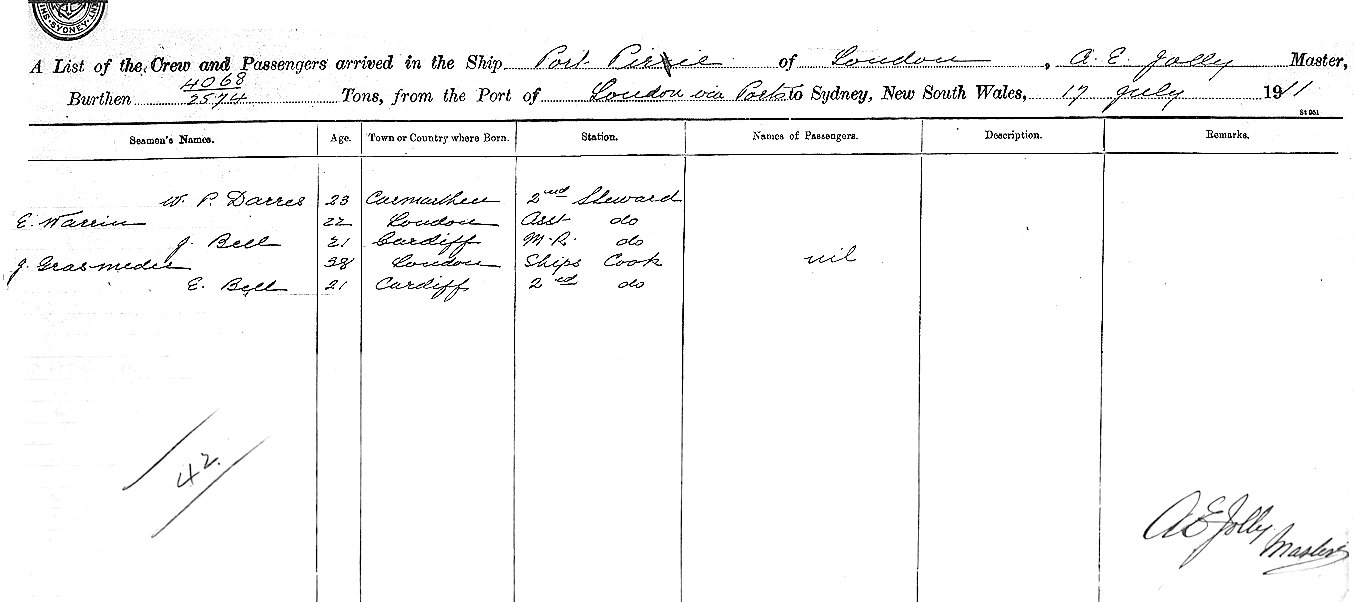 SYDNEY
A List of the Crew and Passengers arrived in the Ship Port Pirie of London, A. E. Jolly Master,
Burthen 4068 2574 Tons, from the Port of London via Ports to Sydney, New South Wales, 17 July 1911
St 051
Seamen's Names. Age. Town or Country where Born. Station. Names of Passengers. Description. Remarks.
W. P. Darres 23 Carmarthen 2nd Steward
E. Warrin 22 London Asst do
J. Bell 21 Cardiff M.R. do
J. Grasmeder 38 London Ships Cook nil
E. Bell 21 Cardiff 2nd do
42.
A E Jolly
Master